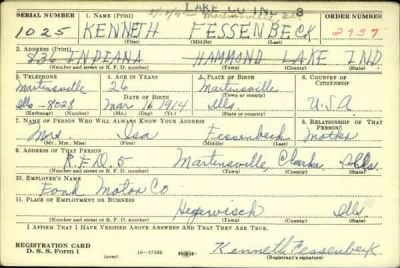 LAKE CO IND 8
SERIAL NUMBER 1. NAME (Print) ORDER NUMBER
1025 KENNETH FESSENBECK 2937
(First) (Middle) (Last)
2. ADDRESS (Print)
836 INDIANA HAMMOND LAKE IND.
(Number and street or R. F. D. number) (Town) (County) (State)
3. TELEPHONE 4. AGE IN YEARS 5. PLACE OF BIRTH 6. COUNTRY OF CITIZENSHIP
Martinsville 26 Martinsville
DATE OF BIRTH (Town or county)
Ills-8028 Mar 16 1914 Ills U.S.A
(Exchange) (Number) (Mo.) (Day) (Yr.) (State or country)
7. NAME OF PERSON WHO WILL ALWAYS KNOW YOUR ADDRESS 8. RELATIONSHIP OF THAT PERSON
Mrs Isa Fessenbeck Mother
(Mr., Mrs., Miss) (First) (Middle) (Last)
9. ADDRESS OF THAT PERSON
R.F.D. 5 Martinsville, Clark, Ills.
(Number and street or R. F. D. number) (Town) (County) (State)
10. EMPLOYER'S NAME
Ford Motor Co
11. PLACE OF EMPLOYMENT OR BUSINESS
Hegewisch Ills
(Number and street or R. F. D. number) (Town) (County) (State)
I AFFIRM THAT I HAVE VERIFIED ABOVE ANSWERS AND THAT THEY ARE TRUE.
REGISTRATION CARD
D. S. S. Form 1 (over) 16-17105 Kenneth Fessenbeck
(Registrant's signature)